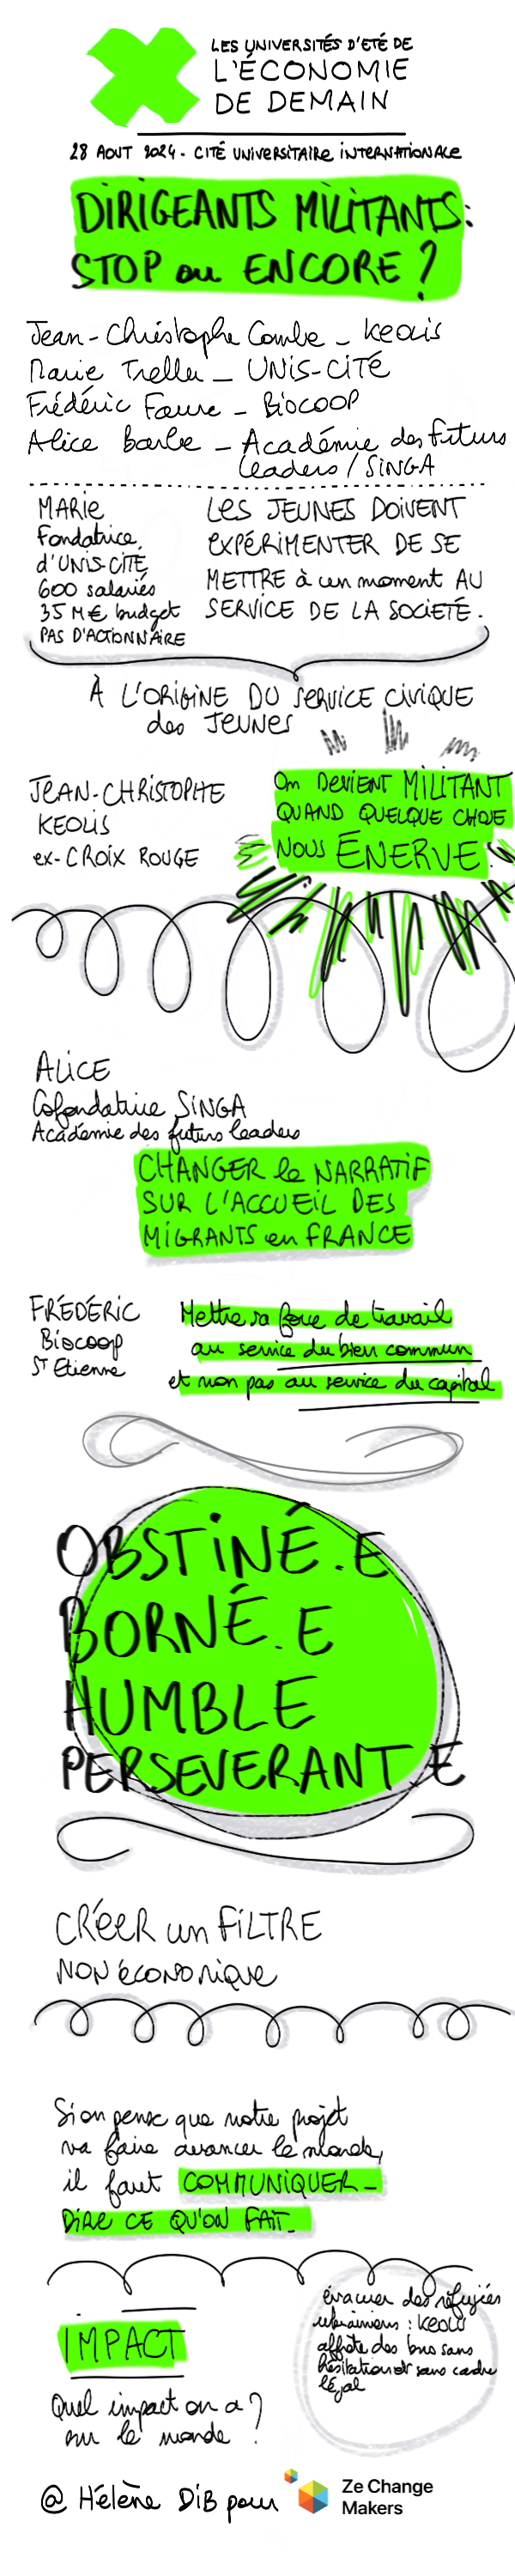 LES UNIVERSITÉS D'ÉTÉ DE
L'ÉCONOMIE
DE DEMAIN
28 AOUT 2024 - CITÉ UNIVERSITAIRE INTERNATIONALE
DIRIGEANTS MILITANTS:
STOP ou ENCORE ?
Jean-Christophe Combe - KEOLIS
Marie Trellu - UNIS-CITÉ
Frédéric Faure - BIOCOOP
Alice Barbe - Académie des futurs
leaders / SINGA
MARIE
Fondatrice
d'UNIS-CITÉ
600 salariés
35 M€ budget
PAS D'ACTIONNAIRE
LES JEUNES DOIVENT
EXPÉRIMENTER DE SE
METTRE à un moment AU
SERVICE DE LA SOCIETÉ.
À L'ORIGINE DU SERVICE CIVIQUE
des JEUNES
JEAN-CHRISTOPHE
KEOLIS
ex-CROIX ROUGE
On DEVIENT MILITANT
QUAND QUELQUE CHOSE
NOUS ÉNERVE.
ALICE
Cofondatrice SINGA
Académie des futurs leaders
CHANGER le NARRATIF
SUR L'ACCUEIL DES
MIGRANTS en FRANCE
FRÉDÉRIC
Biocoop
ST Etienne
Mettre sa force de travail
au service du bien commun
et non pas au service du capital
OBSTINÉ.E
BORNÉ.E
HUMBLE
PERSEVERANT.E
CRÉER un FILTRE
NON économique
Si on pense que notre projet
va faire avancer le monde,
il faut COMMUNIQUER -
DIRE CE QU'ON FAIT.
IMPACT
Quel impact on a
sur le monde ?
évacuer des réfugiés
ukrainiens : KEOLIS
affrète des bus sans
hésitation et sans cadre
légal
@ Hélène DIB pour
Ze Change
Makers